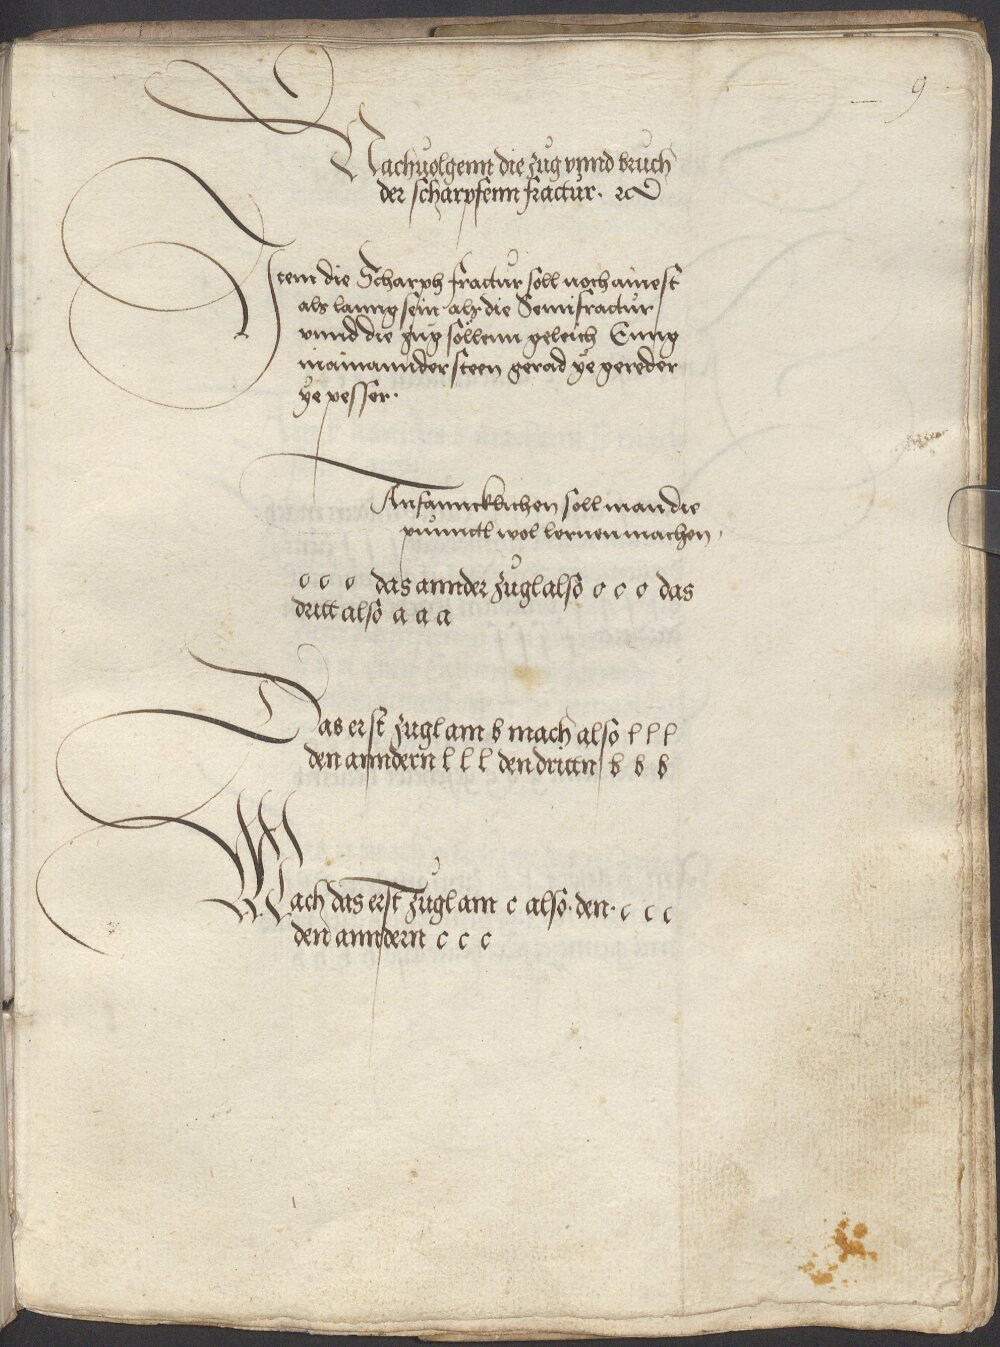 9
Nachuolgenn die zug vnnd bruch
der scharpfenn fractur. ꝛc
Item die Scharph fractur soll noch ainest
als lanng sein als die Semifractur
vnnd die zug söllenn geleich Enng
inainannder steen gerad ye gereder
ye pesser.
Anfanncklichen soll man die
puunctl wol lernen machen.
o o o das annder zugl also o c o das
dritt also a a a
Das erst zugl am b mach also l l l
den anndern l l l den drittn b b b
Mach das erst zugl am c also. den. c c c
den anndern c c c